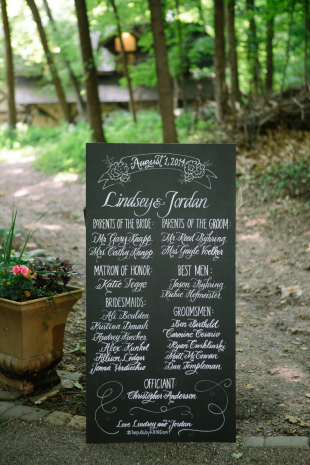 August 1, 2014
Lindsey & Jordan
PARENTS OF THE BRIDE:
Mr Gary Knapp
Mrs Cathy Knapp
PARENTS OF THE GROOM:
Mr Reed Byhring
Mrs Gayle
MATRON OF HONOR:
Katie Segge
BRIDESMAIDS:
Ali Boulden
Kristina Denault
Audrey Ruecker
Alex Kunkel
Allison Ledger
Jenna Verdecchio
BEST MEN:
Jason Byhring
Richie Hofmeister
GROOMSMEN:
Ben Berthold
Carmine Cesario
Ryan Cwiklinski
Matt McCowan
Dan Templeman
OFFICIANT:
Christopher Anderson
Love Lindsey and Jordan